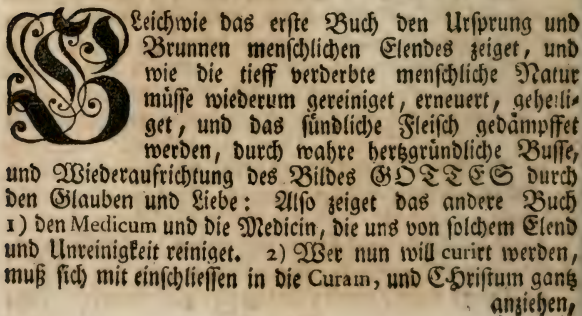 GLeichwie das erste Buch den Ursprung und
Brunnen menschlichen Elendes zeiget, und
wie die tieff verderbte menschliche Natur
müsse wiederum gereiniget, erneuert, geheili-
get, und das sündliche Fleisch gedämpffet
werden, durch wahre hertzgründliche Busse,
und Wiederaufrichtung des Bildes GOTTES durch
den Glauben und Liebe: Also zeiget das andere Buch
1) den Medicum und die Medicin, die uns von solchem Elend
und Unreinigkeit reiniget. 2) Wer nun will curirt werden,
muß sich mit einschliessen in die Curam, und CHristum gantz
anziehen,